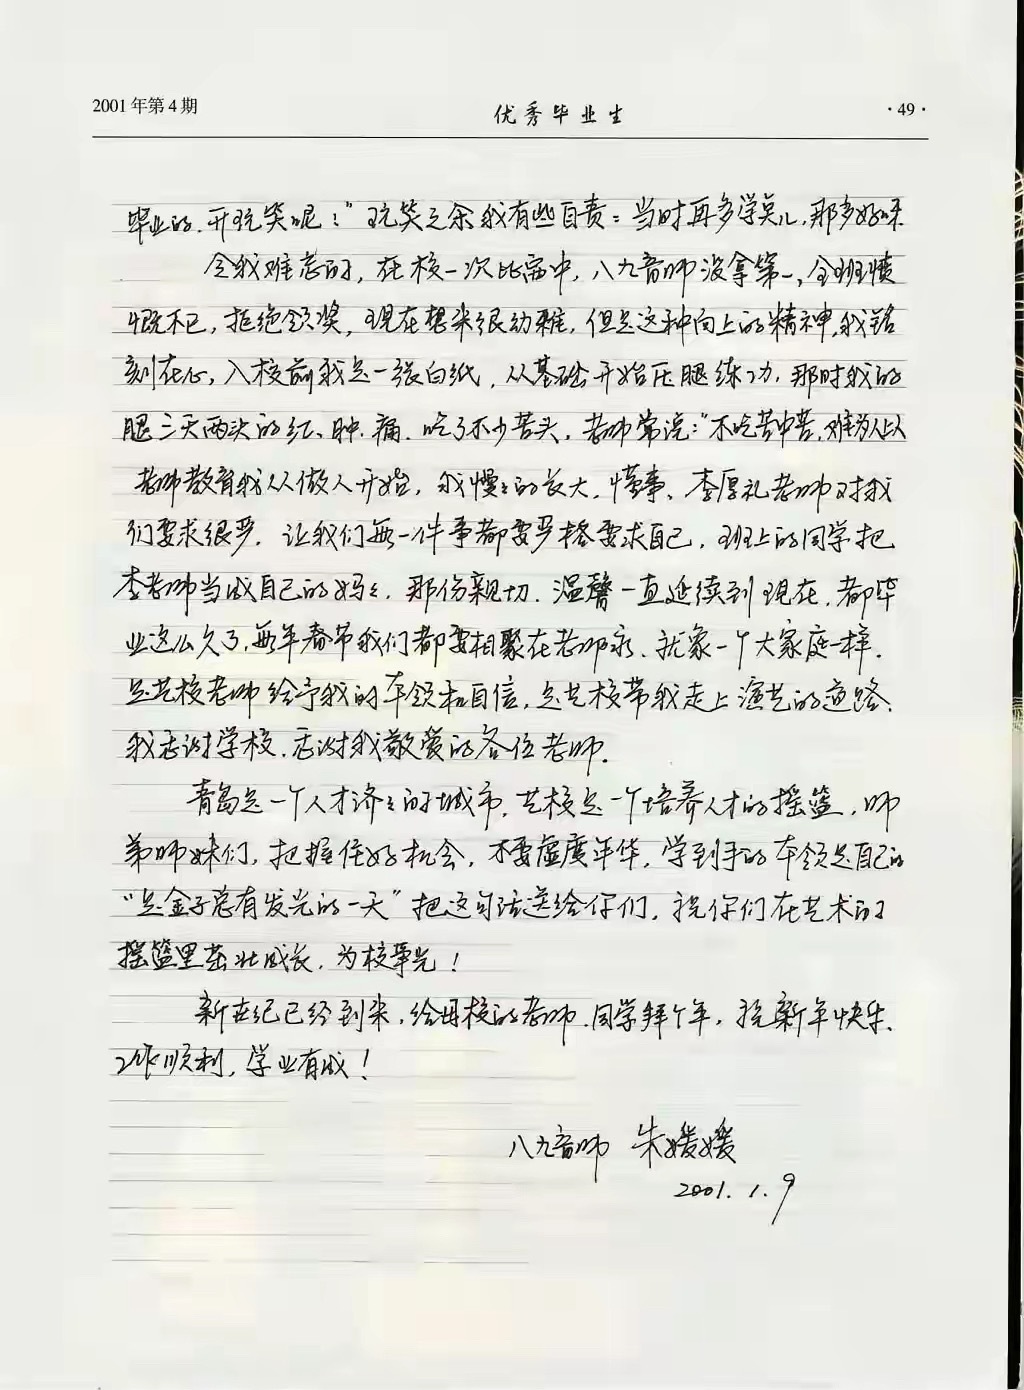 2001年第4期
优秀毕业生
·49·
毕业的,开玩笑呢!”玩笑之余我有些自责:当时再多学莫儿,那多好呀
令我难忘的,在校一次比赛中,八九音师没拿第一,全班愤
慨不已,拒绝领奖,现在想来很幼稚,但是这种向上的精神,我铭
刻在心,入校前我是一张白纸,从基础开始压腿练功,那时我的
腿三天两头的红、肿、痛,吃了不少苦头,老师常说:“不吃苦中苦,难为人上人
老师教育我从做人开始,我慢慢的长大,懂事、李厚礼老师对我
们要求很严,让我们每一件事都要严格要求自己,班上的同学把
李老师当成自己的妈妈,那份亲切、温馨一直延续到现在,都毕
业这么久了,每年春节我们都要相聚在老师家、就象一个大家庭一样,
是艺校老师给予我的本领和自信,是艺校带我走上演艺的道路、
我感谢学校、感谢我敬爱的各位老师。
青岛是一个人才济济的城市,艺校是一个培养人才的摇篮,师
弟师妹们,把握住好机会,不要虚度年华,学到手的本领是自己的
“是金子总有发光的一天”把这句话送给你们,祝你们在艺术的
摇篮里茁壮成长,为校争光!
新世纪已经到来,给母校的老师、同学拜个年,祝新年快乐、
工作顺利,学业有成!
八九音师 朱媛媛
2001.1.9